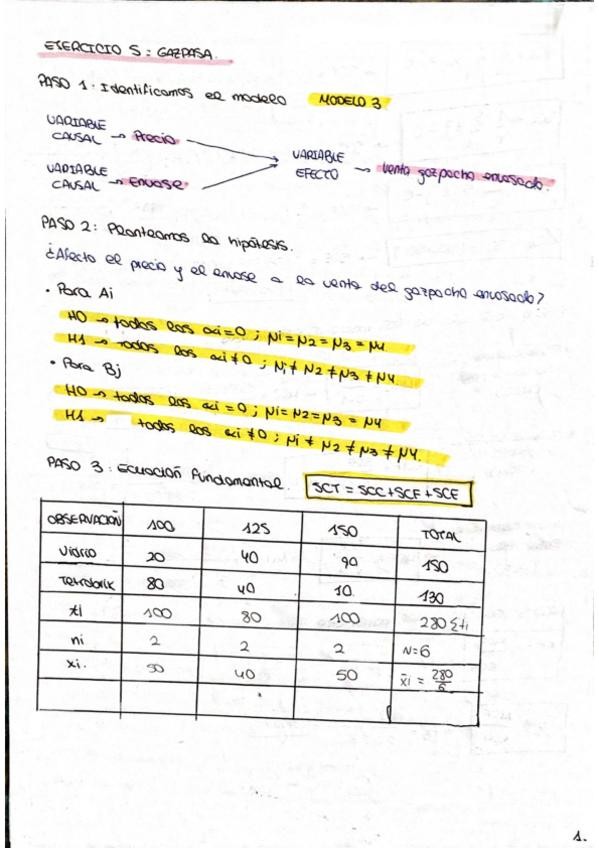 EJERCICIO 5: GAZPASA.
PASO 1: Identificamos el modelo MODELO 3
VARIABLE CAUSAL → Precio
VARIABLE EFECTO → venta gazpacho envasado.
VARIABLE CAUSAL → Envase
PASO 2: Planteamos la hipótesis.
¿Afecta el precio y el envase a la venta del gazpacho envasado?
• Para Ai
H0 → todos los αi=0 ; μi=μ2=μ3=μ4.
H1 → Todos los αi≠0 ; μi≠μ2≠μ3≠μ4.
• Para Bj
H0 → todos los αi=0 ; μi=μ2=μ3=μ4
H1 → todos los αi≠0 ; μi≠μ2≠μ3≠μ4.
PASO 3: Ecuación fundamental. SCT = SCC+SCF+SCE
OBSERVACIÓN 100 125 150 TOTAL
Vidrio 20 40 90 150
Tetrabrik 80 40 10. 130
ti 100 80 100 280 Σti
ni 2 2 2 N=6
xi. 50 40 50 x̄i = 280/6
1.